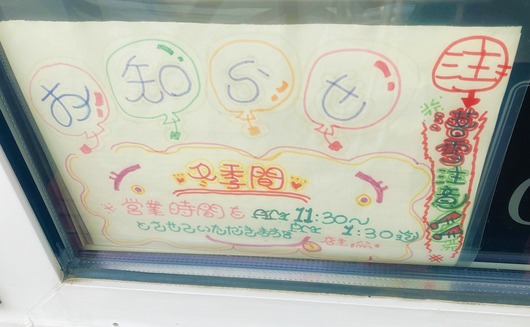 お知らせ
冬季間
※営業時間を AM 11:30～
PM 1:30迄
とさせていただきます
店主
注
落雪注意